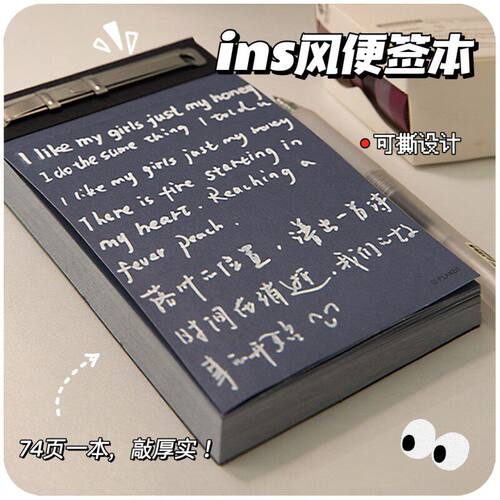 ins风便签本
可撕设计
I like my girls just my honey
I do the same thing I told u
I like my girls just my honey
There is fire starting in
my heart. Reaching a
fever peach.
落叶的位置，谱出一首诗
时间在消逝，我们的故
事开始
74页一本，敲厚实！